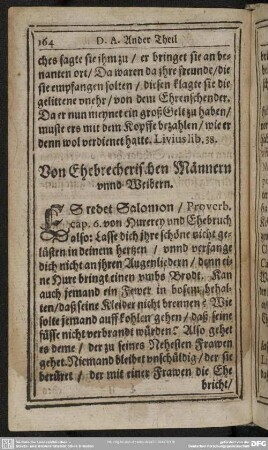 164 D. A. Ander Theil
ches sagte sie jhm zu / er bringet sie an be-
nanten ort / Da waren da jhre freunde / die
sie empfangen solten / diesen klagte sie die
gelittene vnehr / von dem Ehrenschender.
Da er nun meynet ein groß Gelt zu haben /
muste ers mit dem Kopffe bezahlen / wie er
denn wol verdienet hatte. Livius lib. 38.
Von Ehebrecherischen Männern
vnnd Weibern.
ES redet Salomon / Proverb.
cap. 6. von Hurerey und Ehebruch
also: Lasse dich jhre schöne nicht ge-
lüsten in deinem hertzen / vnnd verfange
dich nicht an jhren Augenliedern / denn ei-
ne Hure bringt einen vmbs Brodt. Kan
auch jemand ein Fewer in bosem behal-
ten / daß seine Kleider nicht brennen? Wie
solte jemand auff kohlen gehen / daß seine
füsse nicht verbrandt würden? Also gehet
es deme / der zu seines Nehesten Frawen
gehet. Niemand bleibet vnschüldig / der sie
berüret / der mit einer Frawen die Ehe
bricht /